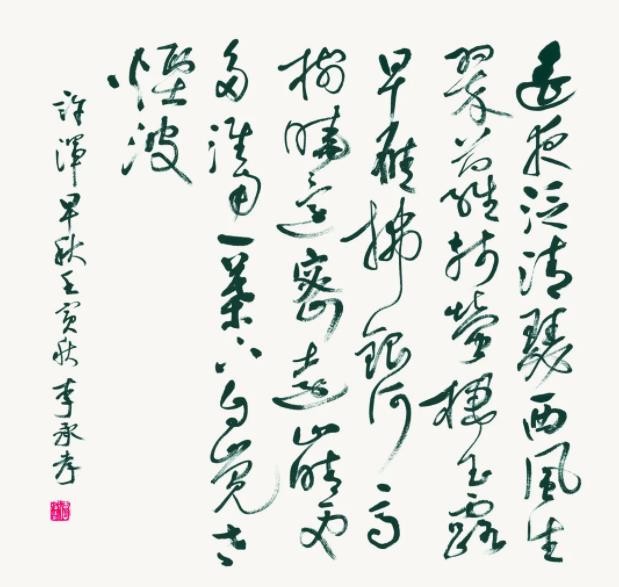 遙夜泛清瑟西風生
翠蘿殘螢棲玉露
早雁拂銀河高
樹曉還密遠山晴更
多淮南一葉下自覺老
煙波
許渾早秋壬寅秋李承孝